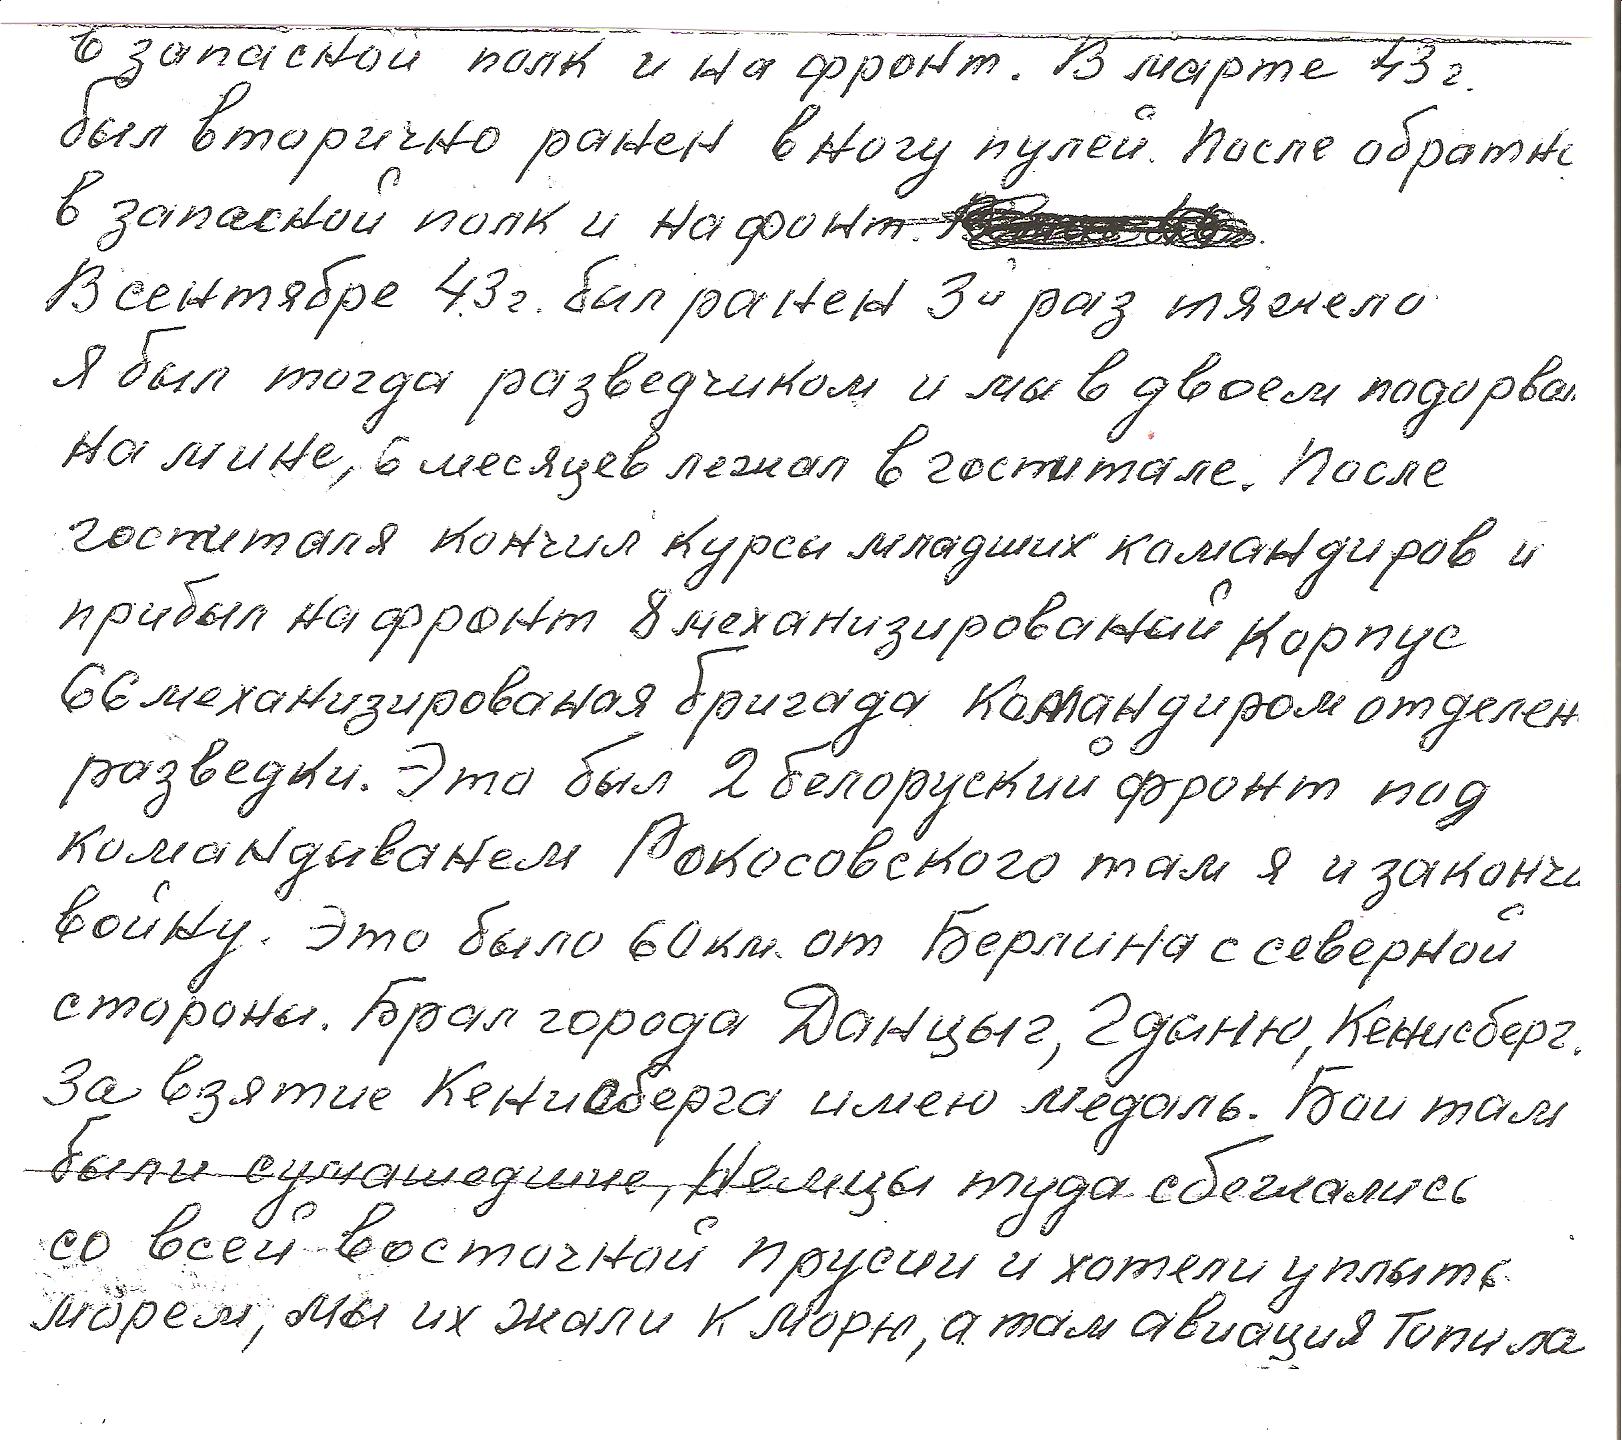 в запасной полк и на фронт. В марте 43 г.
был вторично ранен в ногу пулей. После обратно
в запасной полк и на фонт.
В сентябре 43 г. был ранен 3й раз тяжело
Я был тогда разведчиком и мы в двоем подорвал
на мине, 6 месяцев лежал в госпитале. После
госпиталя кончил курсы младших командиров и
прибыл на фронт 8 механизированый корпус
66 механизированая бригада командиром отделен
разведки. Это был 2 белоруский фронт под
командыванем Рокосовского там я и закончи
войну. Это было 60 км. от Берлина с северной
стороны. Брал города Данцыг, Гдыню, Кенисберг.
За взятие Кенисберга имею медаль. Бои там
были сумашедшие, Немцы туда сбежались
со всей восточной Прусии и хотели уплыть
морем, мы их жали к морю, а там авиация топила